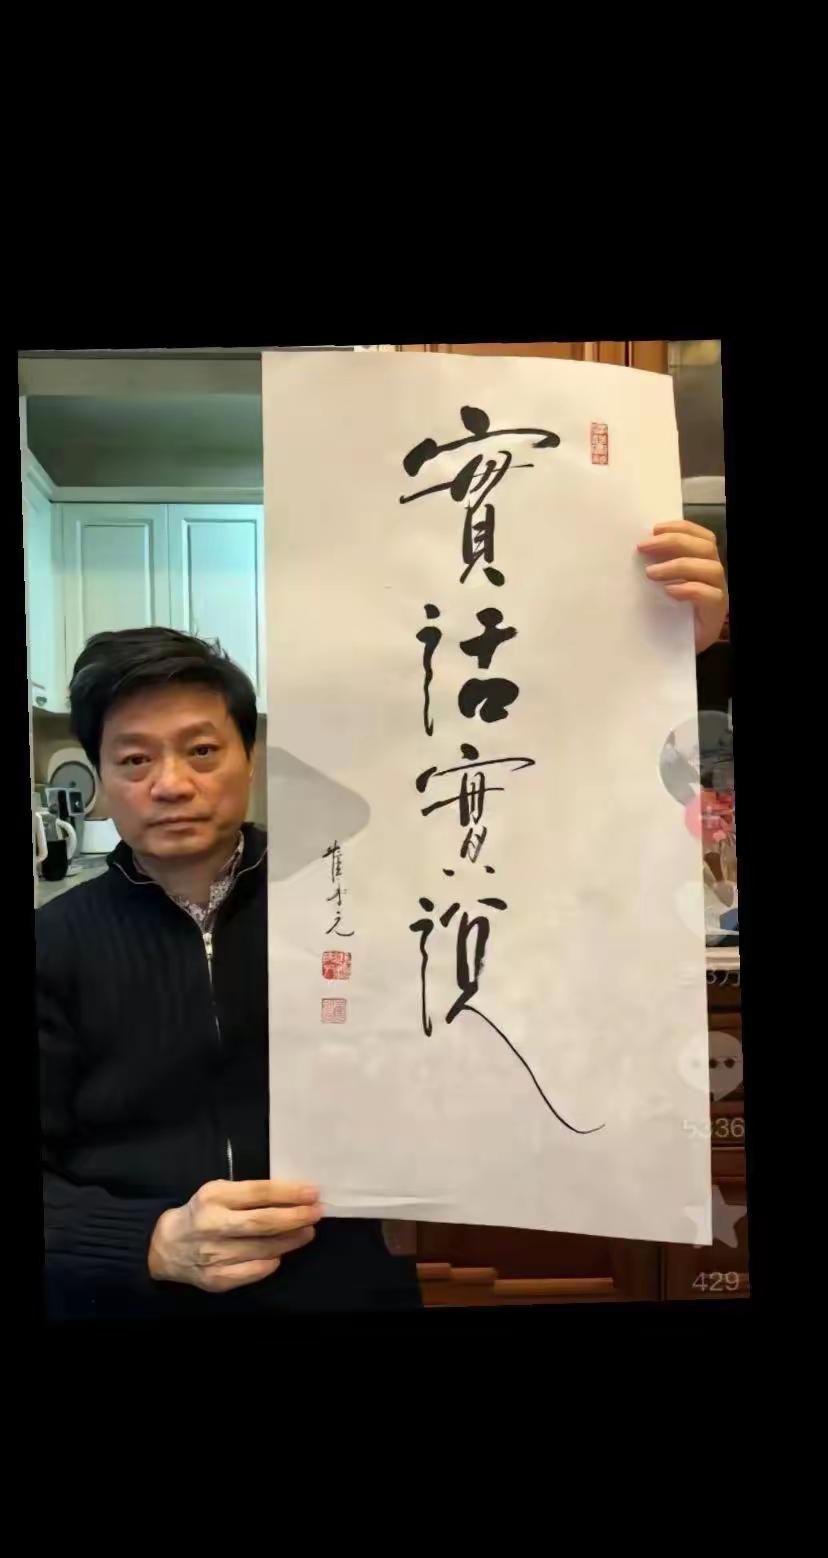 實話實說
崔永元
5336
429